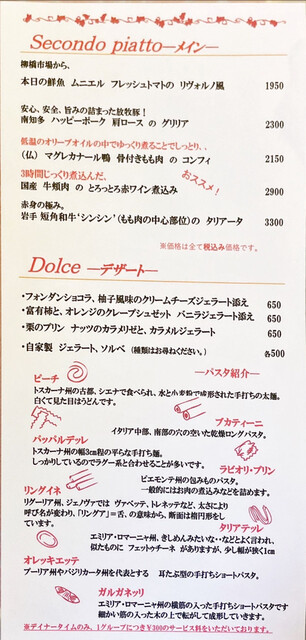 Secondo piatto—メイン—
柳橋市場から、
本日の鮮魚 ムニエル フレッシュトマトの リヴォルノ風 1950
安心、安全、旨みの詰まった放牧豚！
南知多 ハッピーポーク 肩ロース の グリリア 2300
低温のオリーブオイルの中でゆっくり煮ることでしっとり、、
（仏） マグレカナール鴨 骨付きもも肉 の コンフィ 2150
3時間じっくり煮込んだ、
おススメ！
国産 牛頬肉 の とろとろ赤ワイン煮込み 2900
赤身の極み。
岩手 短角和牛‘シンシン’（もも肉の中心部位）の タリアータ 3300
※価格は全て税込み価格です。
Dolce —デザート—
・フォンダンショコラ、柚子風味のクリームチーズジェラート添え 650
・富有柿と、オレンジのクレープシュゼット バニラジェラート添え 650
・栗のプリン ナッツのカラメリゼと、カラメルジェラート 650
・自家製 ジェラート、ソルベ （種類はお尋ねください。） 各500
—パスタ紹介—
ピーチ
トスカーナ州の古都、シエナで食べられ、水と小麦粉で成形された手打ちの太麺。
白くて見た目はうどんです。
ブカティーニ
イタリア中部、南部の穴の空いた乾燥ロングパスタ。
パッパルデッレ
トスカーナ州の幅3㎝程の平らな手打ち麺。
しっかりしているのでラグー系と合わせることが多いです。
ラビオリ・プリン
ピエモンテ州の包みものパスタ。
一般的にはお肉の煮込みなどを詰めます。
リングイネ
リグーリア州、ジェノヴァでは ヴァベッテ、トレネッテなど、太さにより
呼び名が変わり、「リングア」＝舌、の意味から、断面は楕円形をし
ています。
タリアテッレ
エミリア・ロマーニャ州、きしめんみたいな・・などとよく言われ、
似たものに フェットゥチーネ がありますが、少し幅が狭く1cm
オレッキエッテ
プーリア州やバジリカータ州を代表とする 耳たぶ型の手打ちショートパスタ。
ガルガネッリ
エミリア・ロマーニャ州の横筋の入った手打ちショートパスタです
細かい筋の入った板の上で転がして成形していきます。
※ディナータイムのみ、1グループにつき¥300のサービス料をいただいております。